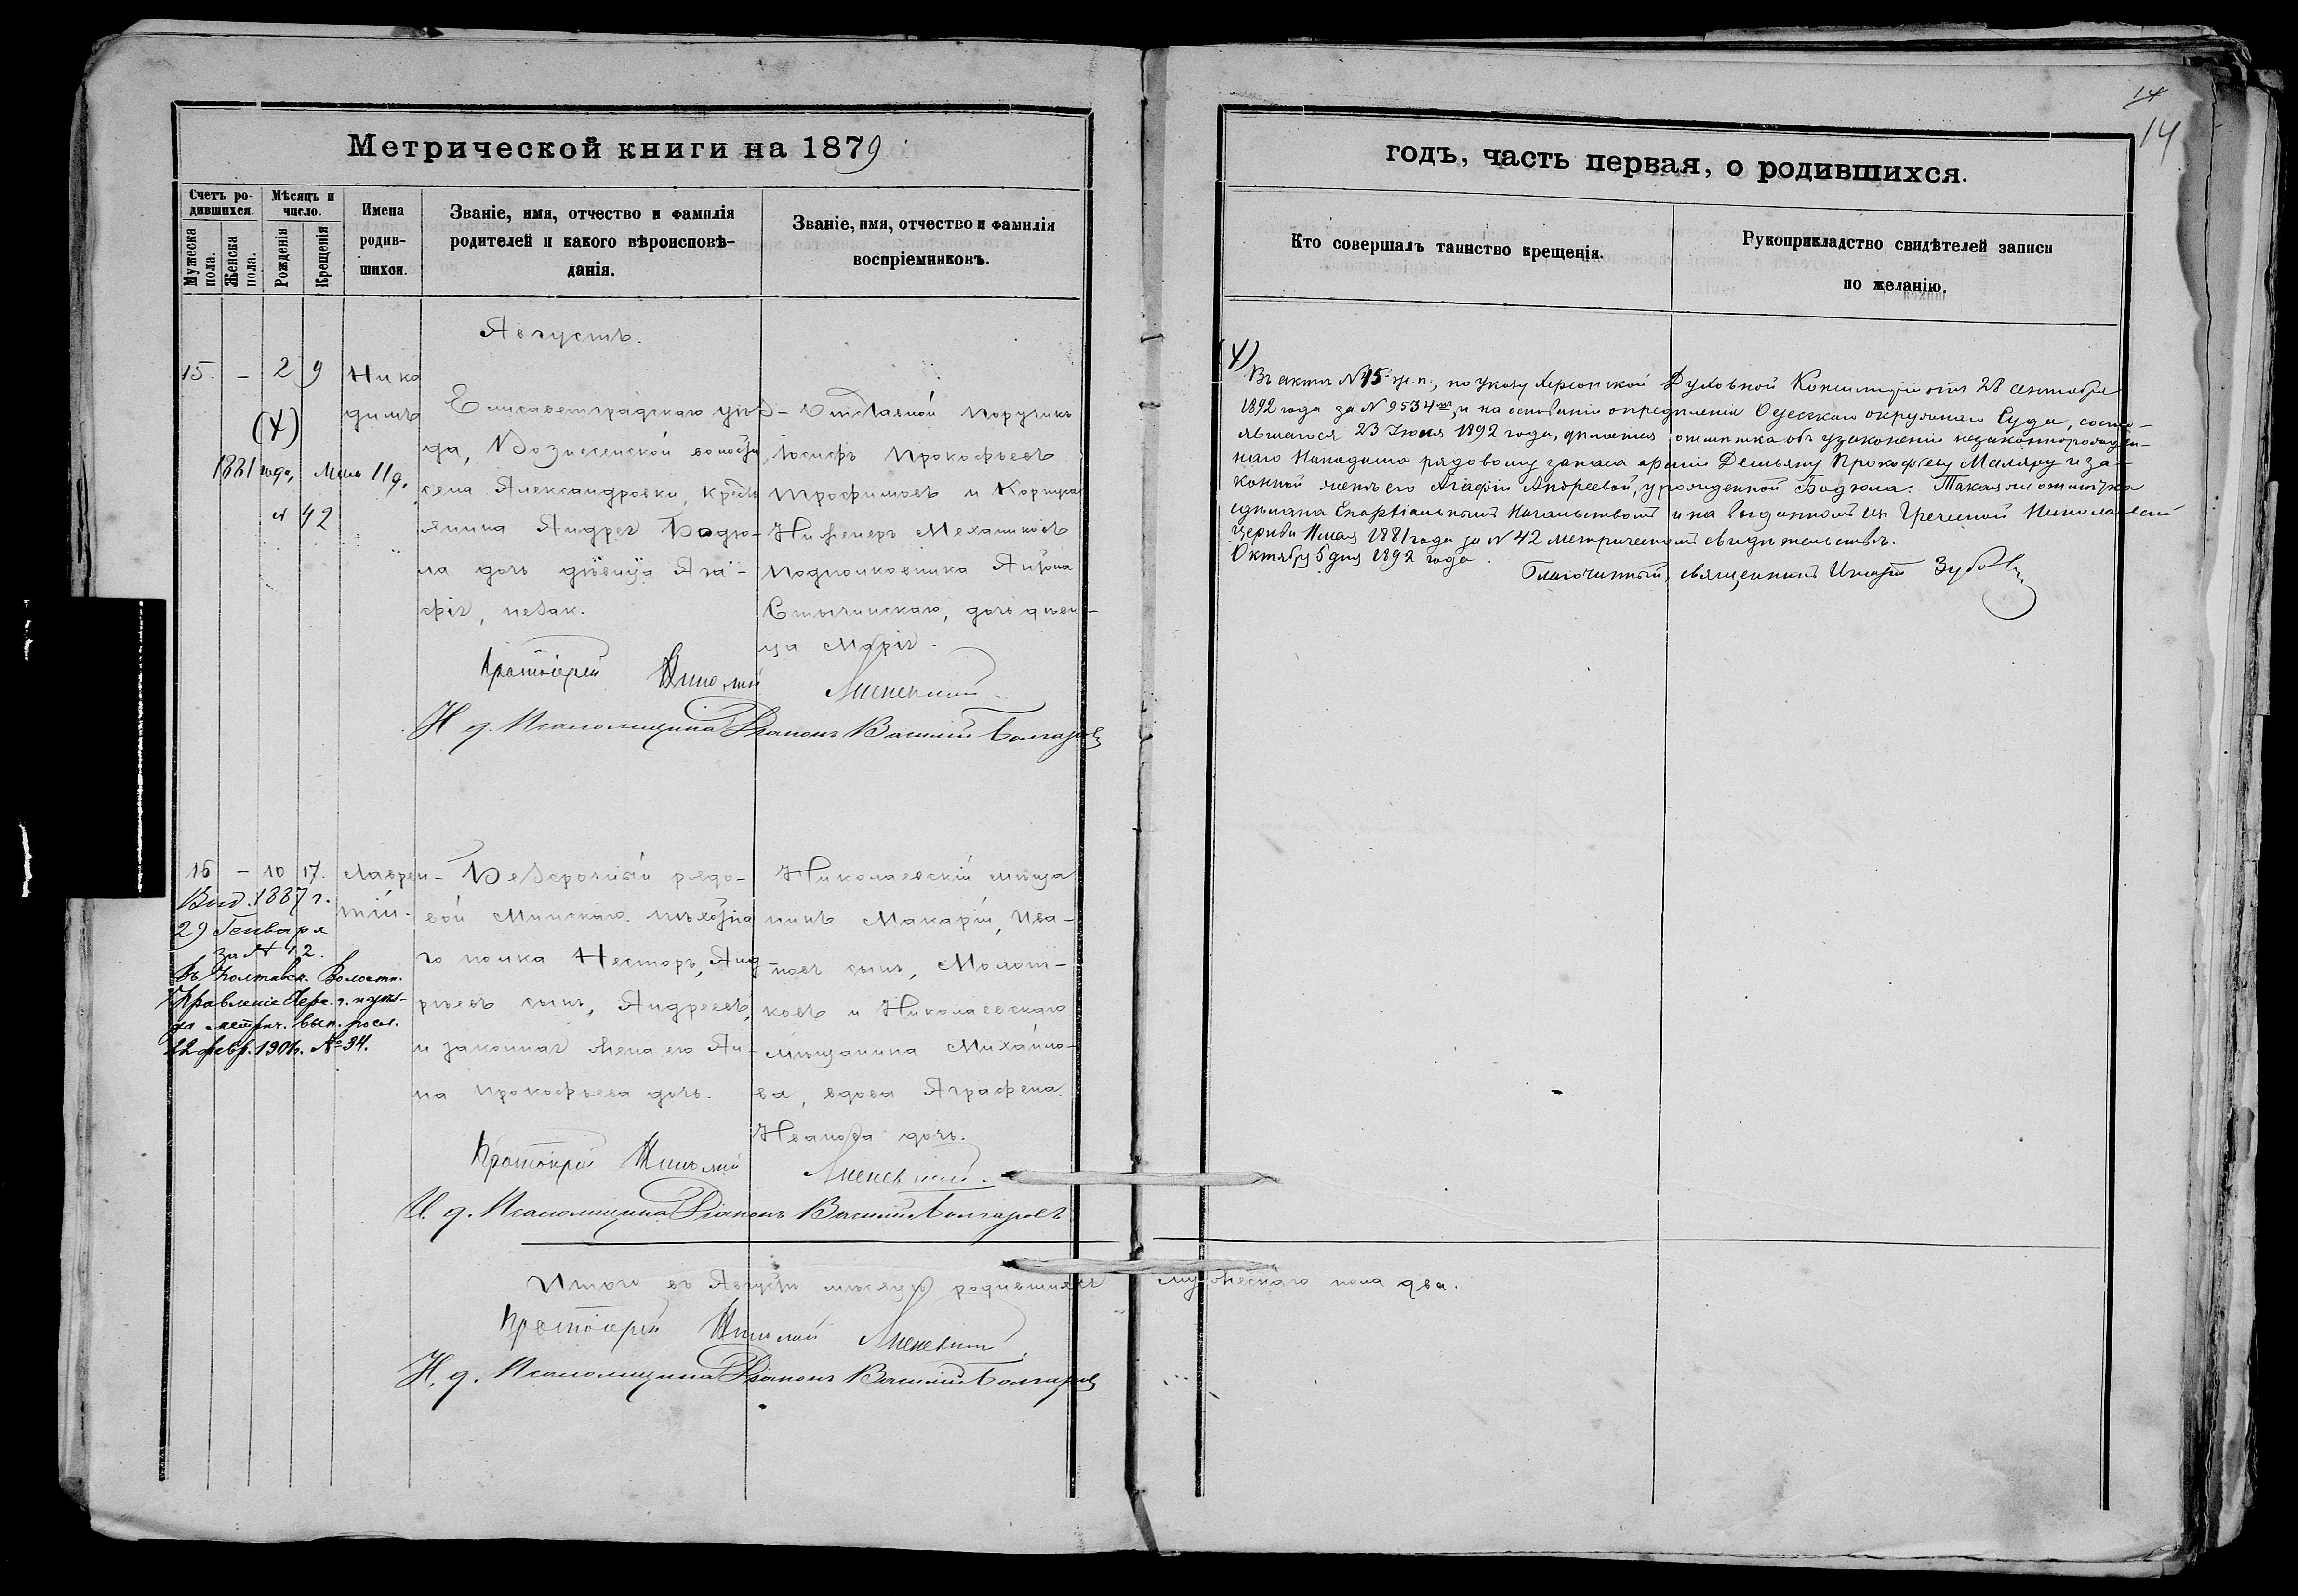 14
14
Метрической книги на 1879
годъ, часть первая, о родившихся.
Счетъ ро-
дившихся.
Мужеска пола.
Женска пола.
Мѣсяцъ и
число.
Рожденія
Крещенія
Имена
родив-
шихся.
Званіе, имя, отчество и фамилія
родителей и какого вѣроисповѣ-
данія.
Званіе, имя, отчество и фамилія
воспріемниковъ.
Кто совершалъ таинство крещенія.
Рукоприкладство свидѣтелей записи
по желанію.
Августъ.
15. – 2 9
Нико
димъ
(Х)
1881 года, Мая 11 д.
№ 42
Елисаветградскаго уѣз-
да, Вознесенской волости
села Александровки, крестъ
янина Андрея Бодю-
ла дочь дѣвица Ага-
фія, незак.
Отставной Поручикъ
Іосифъ Прокофьевъ
Трофимовъ и Корпуса
Инженеръ Механиковъ
Подполковника Антона
Стычинскаго, дочь дѣви-
ца Марія.
Протоіерей Николай
И. д. Псаломщика Діаконъ Василій Болгаровъ
(Х)
Въ актѣ № 15 м. п., по указу Херсонской Духовной Консисторіи отъ 28 сентября
1892 года за № 9534 м, и на основаніи опредѣленія Одесскаго окружнаго Суда, состо-
явшагося 23 Іюня 1892 года, дѣлается отмѣтка объ узаконеніи незаконнорожден-
наго Никодима рядовому запаса арміи Демьяну Прокофьеву Маляру и за-
конной женѣ его Агафіи Андреевой, урожденной Бодюла. Такая же отмѣтка
сдѣлана Епархіальнымъ Начальствомъ и на выданномъ изъ Греческой Николаевской
Церкви 11 мая 1881 года за № 42 метрическомъ свидѣтельствѣ.
Октября 5 дня 1892 года.
Благочинный, священникъ Зубовъ
16 – 10 17.
Лаврен-
тій.
Выд. 1887 г.
29 Генваря
за № 12.
Въ Полтавск. Волостн.
Правленіе Херс. г. и уѣз-
да метрич. вып. посл.
12 февр. 1901 г. № 34.
Безсрочный рядо-
вой Минскаго пѣхотна
го полка Несторъ, Анд
реевъ сынъ, Андреевъ,
и законная жена его Ан-
на Прокофьева дочь.
Николаевскій мѣща
нинъ Макарій, Ива-
новъ сынъ, Молот-
ковъ и Николаевскаго
мѣщанина Михайло-
ва, вдова Аграфена
Иванова дочь.
Протоіерей Николай
И. д. Псаломщика Діаконъ Василій Болгаровъ
Итого въ Августѣ мѣсяцѣ родившихся мужескаго пола два.
Протоіерей Николай
И. д. Псаломщика Діаконъ Василій Болгаровъ